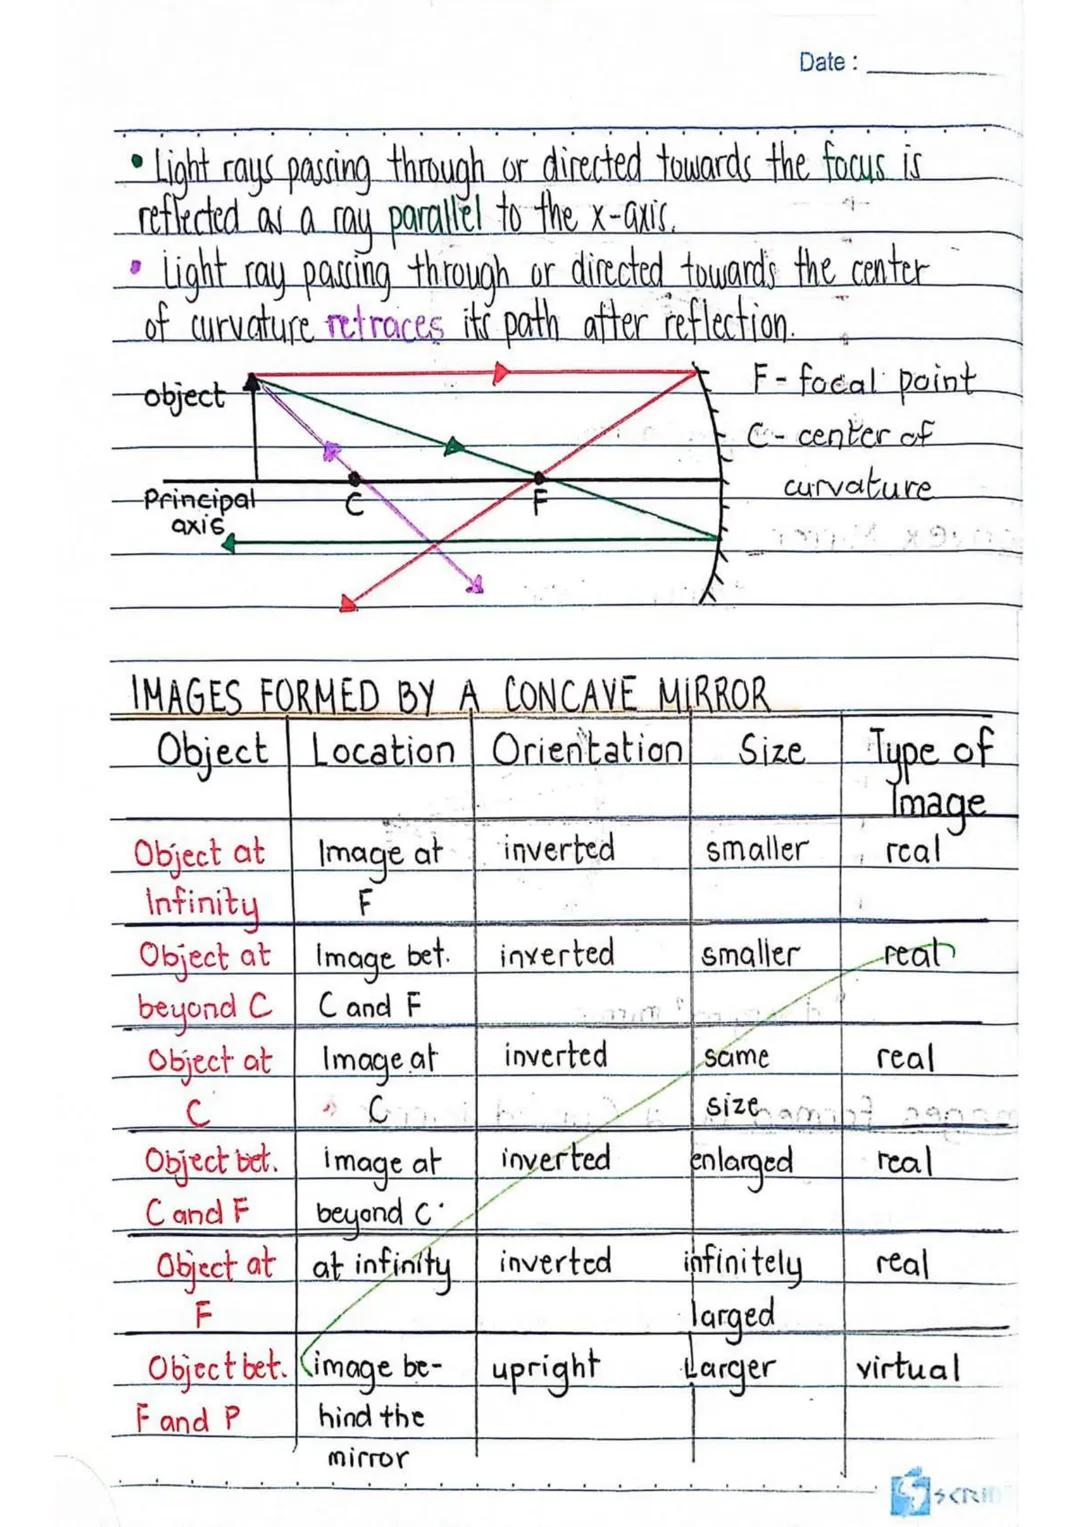 Date :
• Light rays passing through or directed towards the focus is
reflected as a ray parallel to the x-axis.
• Light ray passing through or directed towards the center
of curvature retraces its path after reflection.
object
F - focal point
C - center of
curvature
Principal
axis
C
F
IMAGES FORMED BY A CONCAVE MIRROR
Object Location Orientation Size Type of
Image
Object at Image at inverted smaller real
Infinity F
Object at Image bet. inverted smaller real
beyond C C and F
Object at Image at inverted same real
C C size
Object bet. image at inverted enlarged real
C and F beyond C
Object at at infinity inverted infinitely real
F larged
Object bet. image be- upright Larger virtual
F and P hind the
mirror